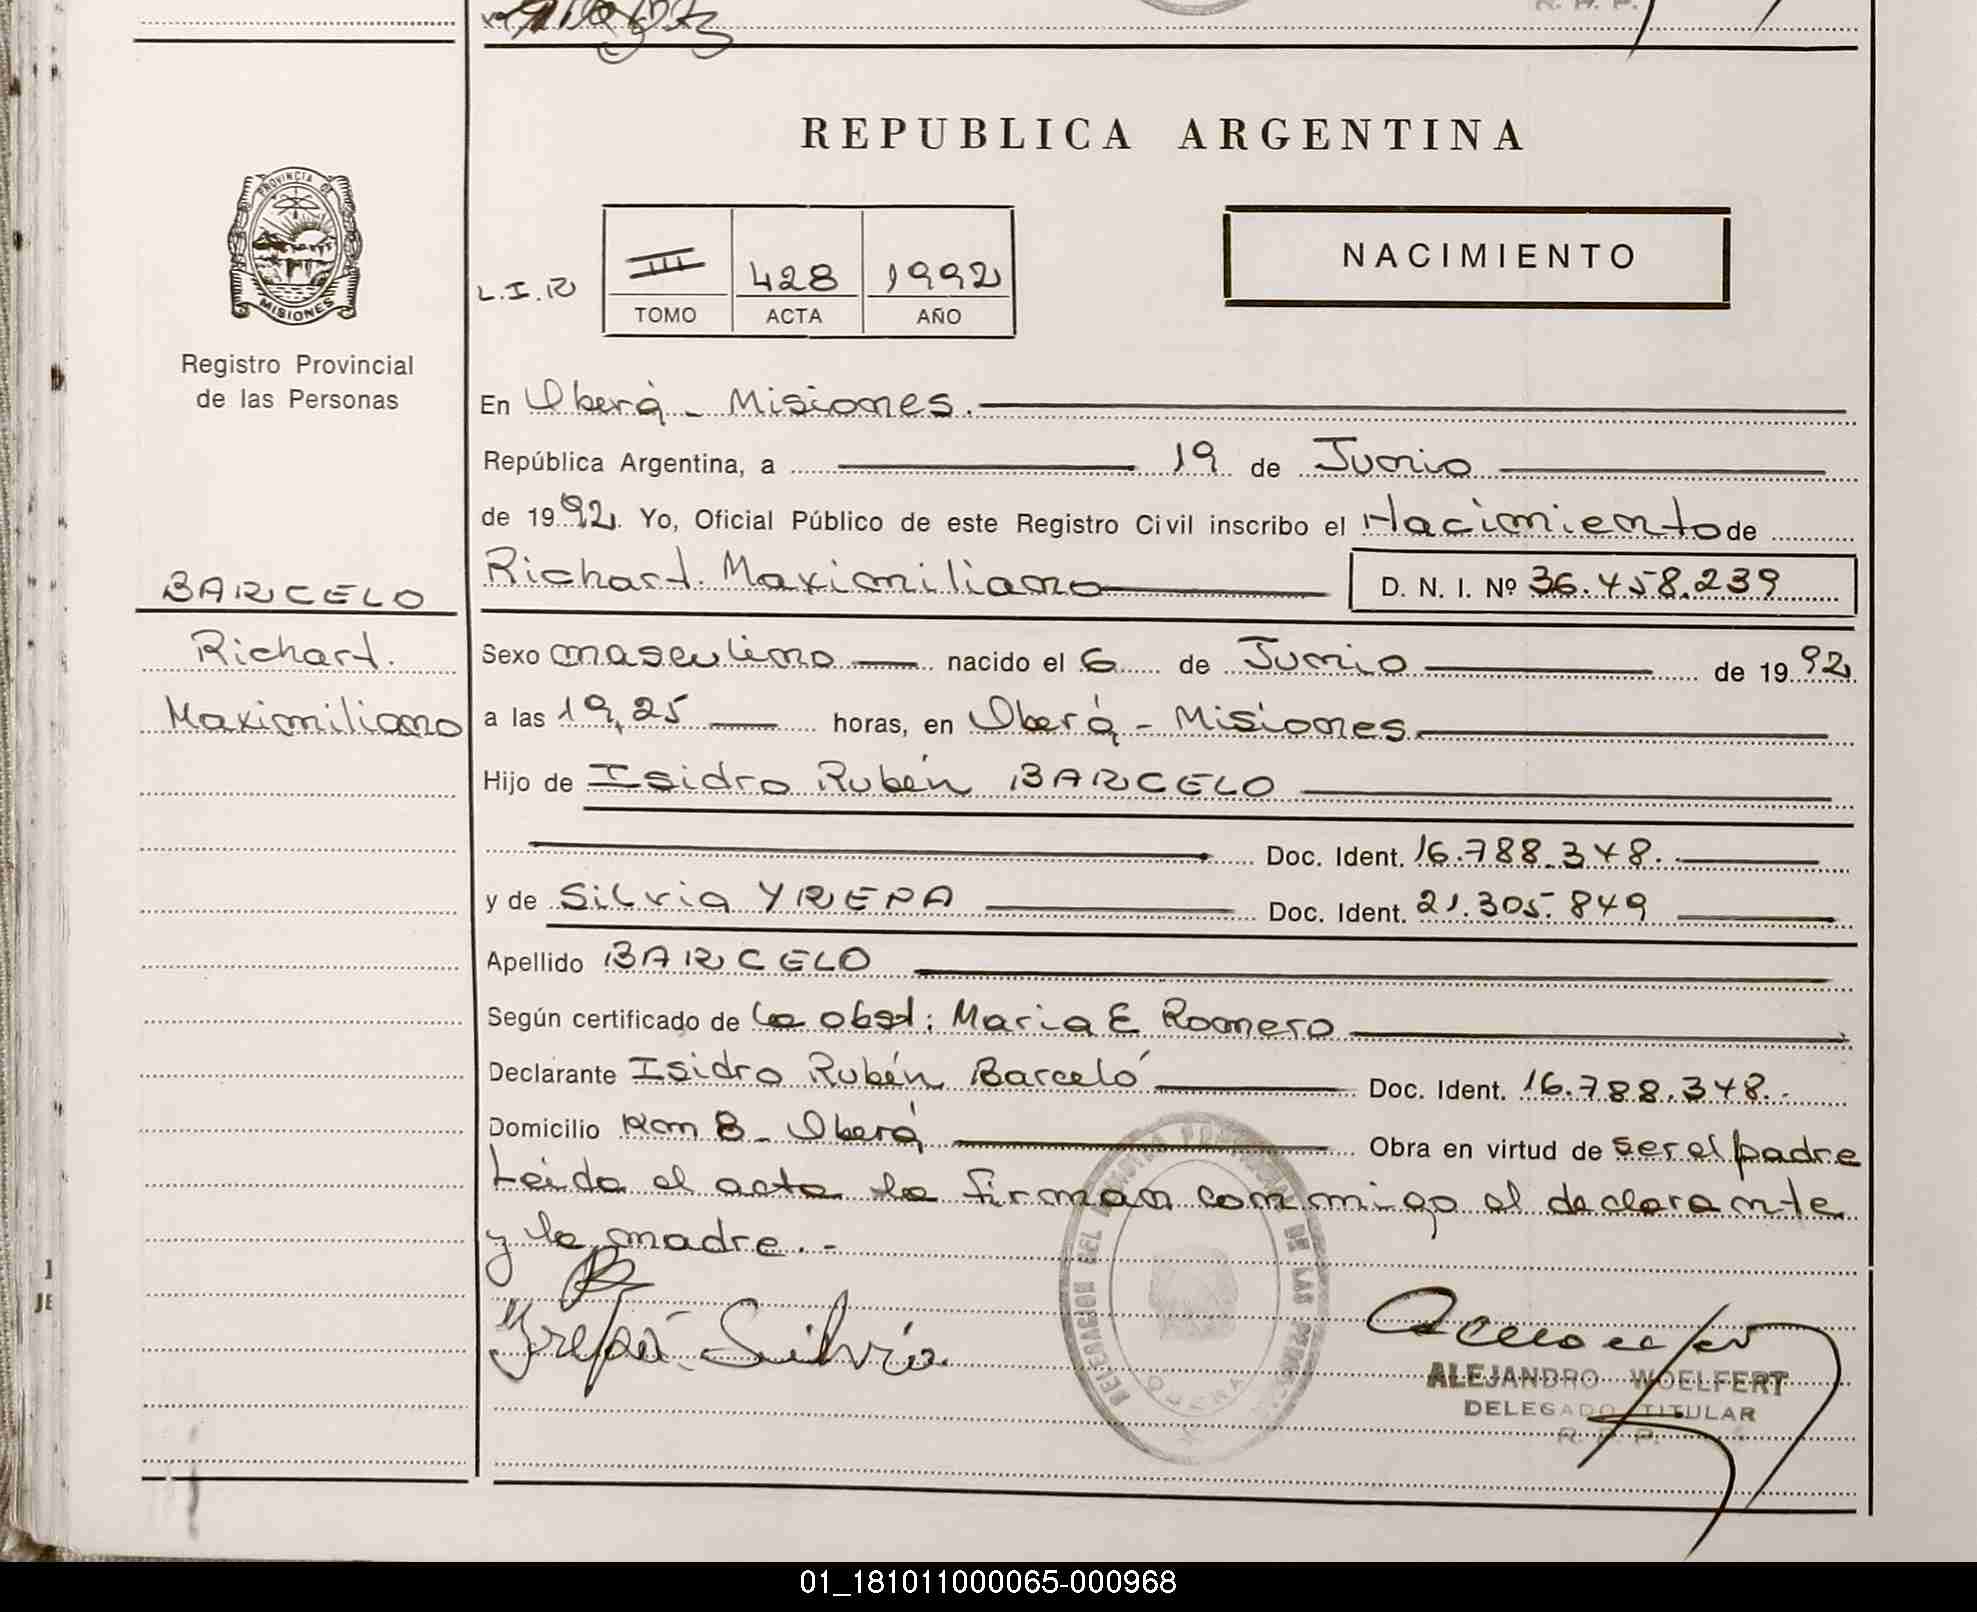 REPUBLICA ARGENTINA
PROVINCIA DE
MISIONES
Registro Provincial
de las Personas
L.I.R
III 428 1992
TOMO ACTA AÑO
NACIMIENTO
En Oberá - Misiones.
República Argentina, a 19 de Junio
de 1992. Yo, Oficial Público de este Registro Civil inscribo el Nacimiento de
Richart Maximiliano D. N. I. Nº 36.458.239
BARCELO
Richart.
Maximiliano
Sexo masculino nacido el 6 de Junio de 1992
a las 19,25 horas, en Oberá - Misiones
Hijo de Isidro Rubén BARCELO
Doc. Ident. 16.788.348.
y de Silvia YREPA Doc. Ident. 21.305.849
Apellido BARCELO
Según certificado de la obst: Maria E Romero
Declarante Isidro Rubén Barceló Doc. Ident. 16.788.348.
Domicilio Km 8 - Oberá Obra en virtud de ser el padre
Leida el acta la firman conmigo el declarante
y la madre.-
Yrepá Silvia
DELEGACION DEL REGISTRO PROVINCIAL DE LAS PERSONAS
OBERA
ALEJANDRO WOELFERT
DELEGADO TITULAR
R. P. P.
01_181011000065-000968